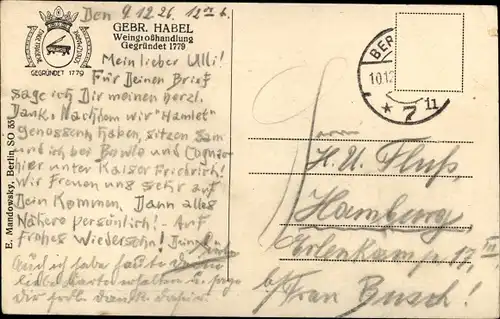 Den 9.12.26. 12
GEBR. HABEL
Weingroßhandlung
Gegründet 1779
GEGRÜNDET 1779
Mein lieber Ulli!
Für Deinen Brief
sage ich Dir meinen herzl.
Dank. Nachdem wir "Hamlet"
genossen haben, sitzen
und ich bei Bowle und
hier unter Kaiser Friedrich!
Wir freuen uns sehr auf
Dein Kommen. Dann alles
Nähere persönlich! - Auf
frohes Wiedersehn! Dein
Auch ich habe heute
liebe Karte erhalten u. sage
Dir Dank dafür.
E. Mandowsky, Berlin SO 33
BER
10.12
* 7 11
Herrn
H. U. Fluß,
Hamburg,
Erlenkamp 17, III
b/ Frau Busch!